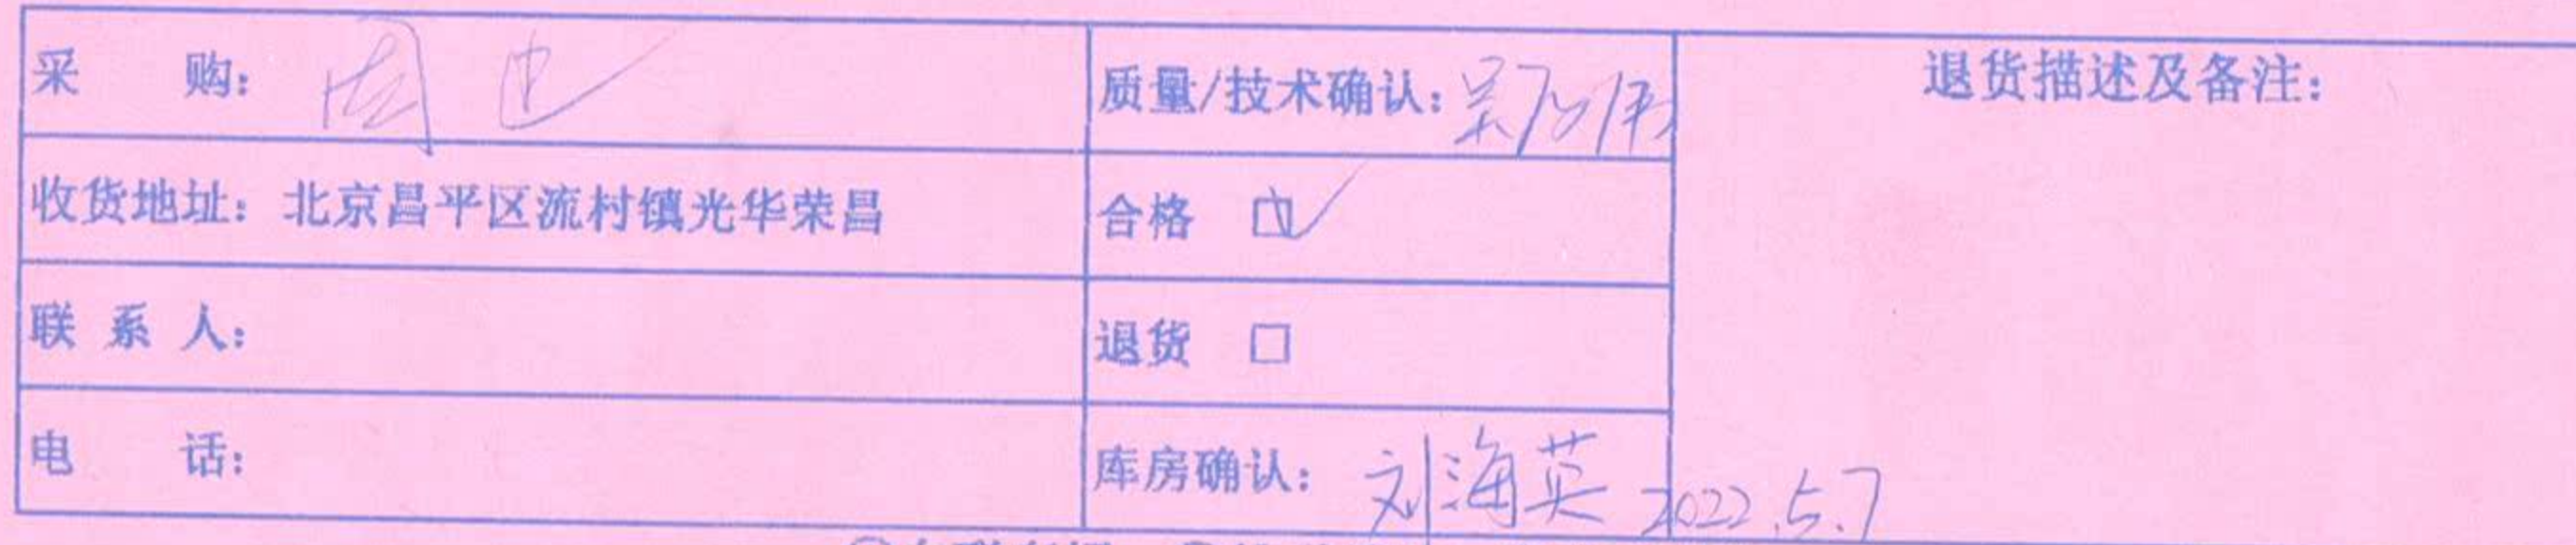 采 购：周
质量/技术确认：吴
退货描述及备注：
收货地址：北京昌平区流村镇光华荣昌
合格 ☑
联 系 人：
退货 □
电 话：
库房确认：刘海英 2022.5.7